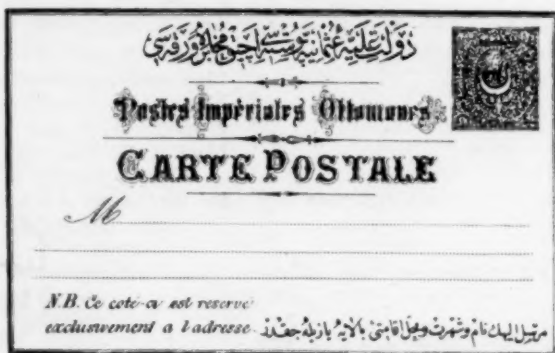 دولت عليه عثمانيه پوسته سى آچيق مخابره ورقه سى
Postes Impériales Ottomanes
CARTE POSTALE
M
N.B. Ce coté-ci est reservé
exclusivement a l'adresse
مرسل اليهك نام وشهرت ومحل اقامتى بالايه يازيله جقدر